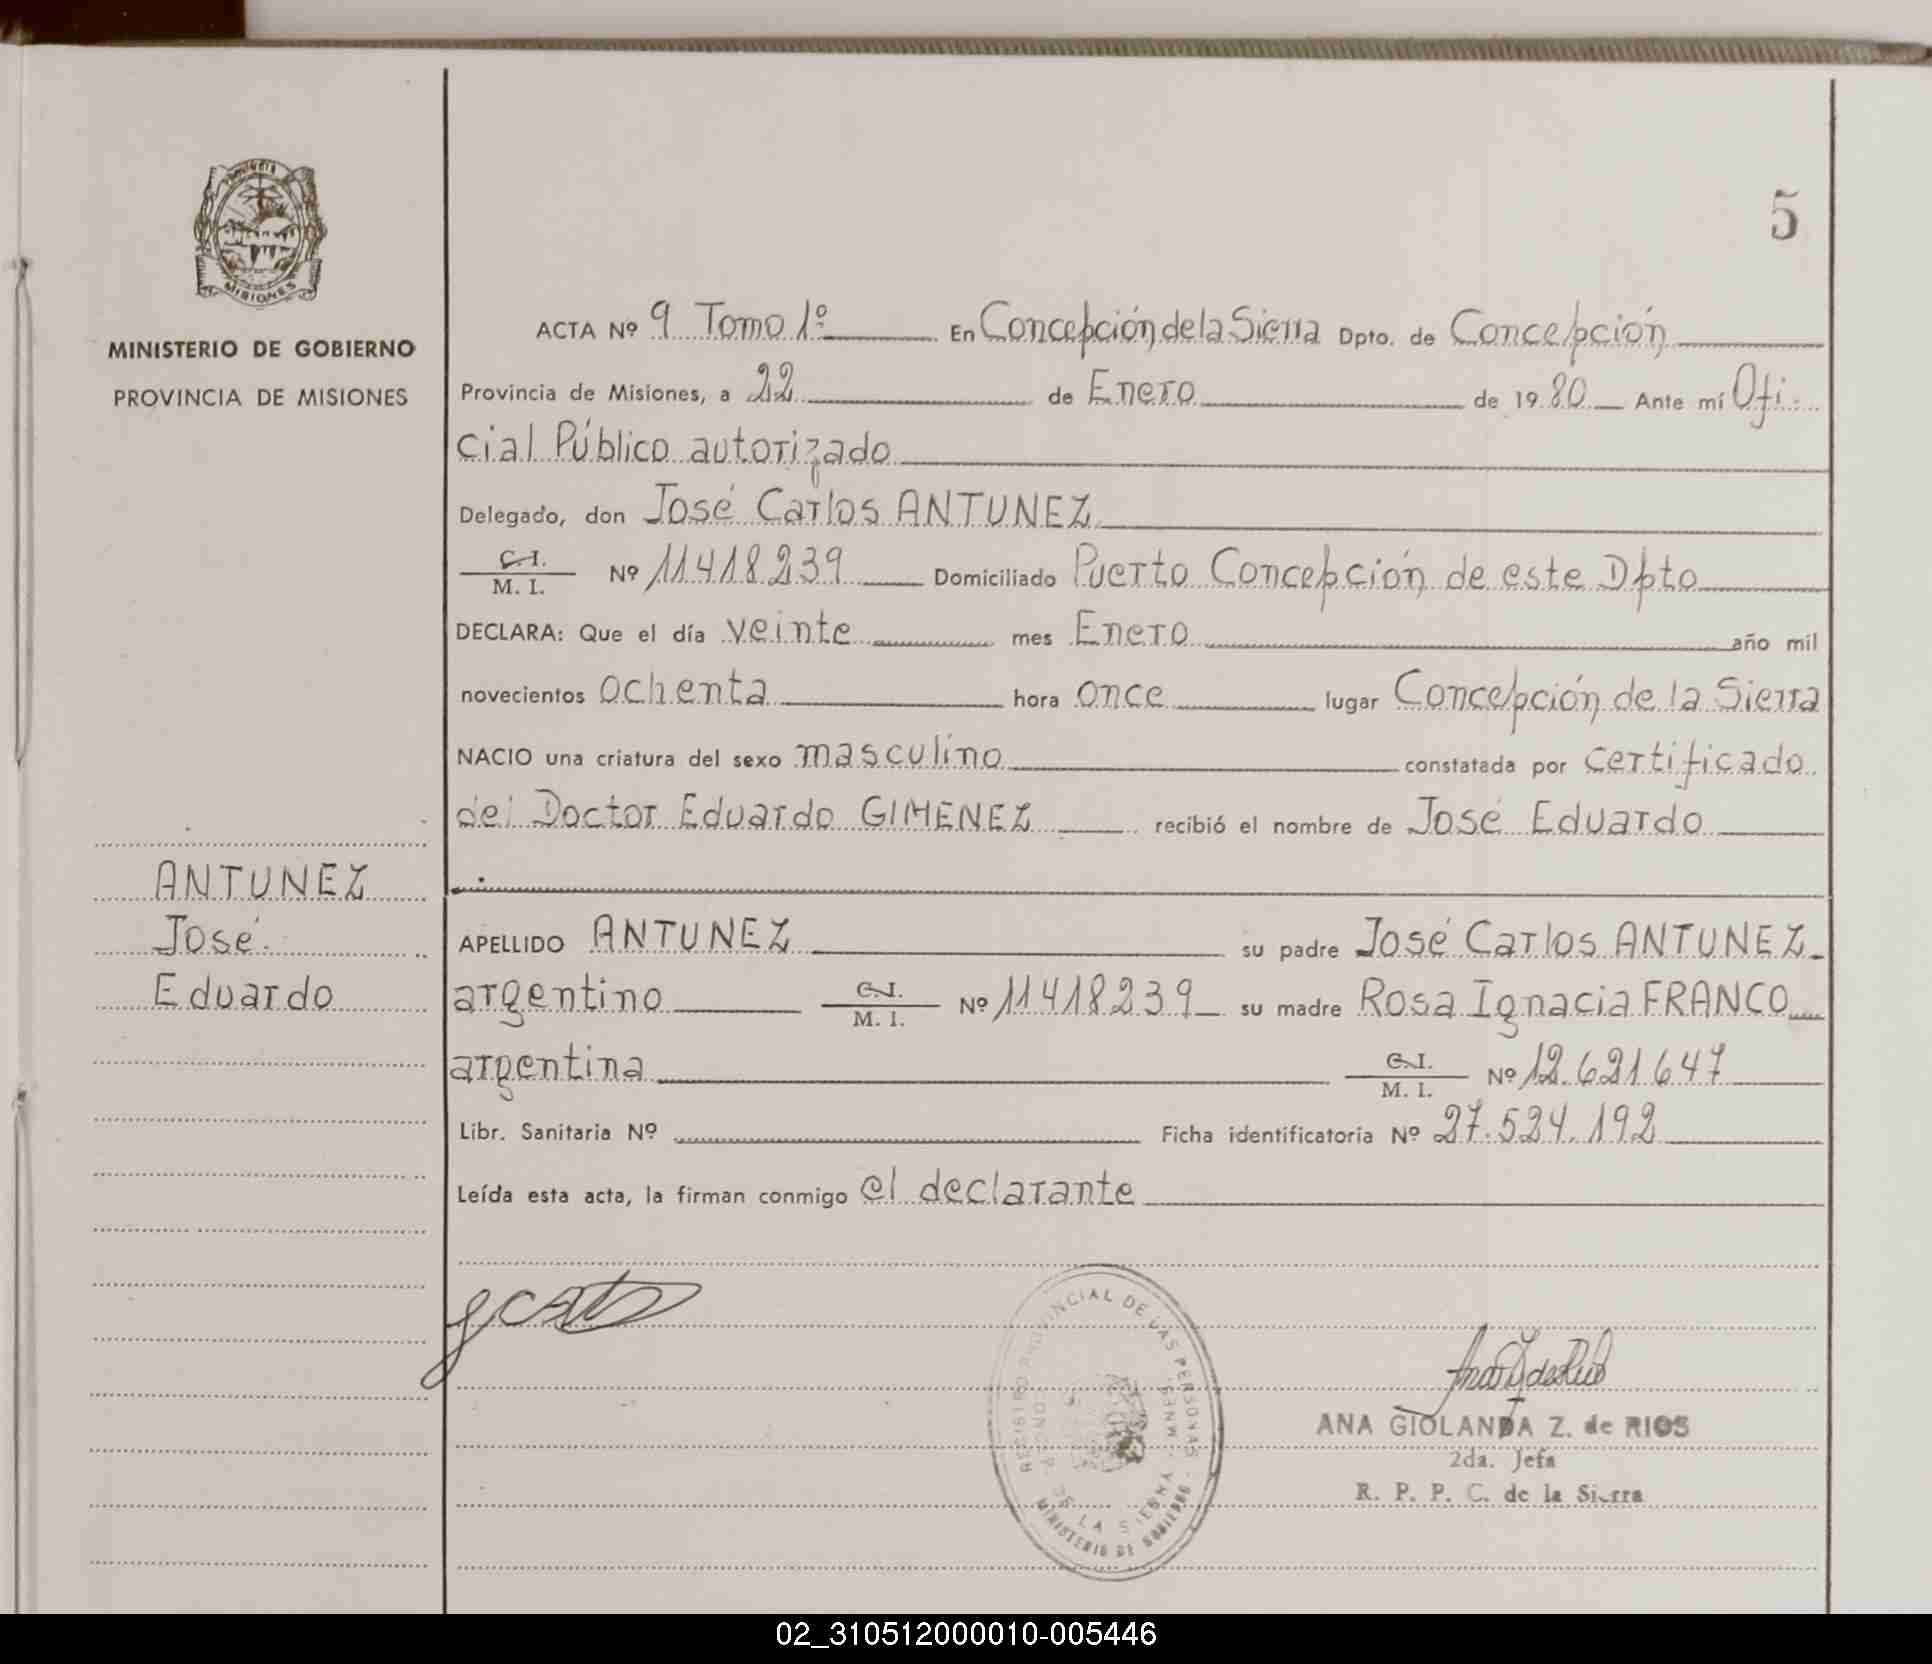 5
PROVINCIA
MISIONES
MINISTERIO DE GOBIERNO
PROVINCIA DE MISIONES
ACTA Nº 9 Tomo 1º En Concepción de la Sierra Dpto. de Concepción
Provincia de Misiones, a 22 de Enero de 1980 Ante mí Ofi-
cial Público autorizado
Delegado, don José Carlos ANTUNEZ
C.I. / M. I. Nº 11418239 Domiciliado Puerto Concepción de este Dpto
DECLARA: Que el día veinte mes Enero año mil
novecientos ochenta hora once lugar Concepción de la Sierra
NACIO una criatura del sexo masculino constatada por certificado
del Doctor Eduardo GIMENEZ recibió el nombre de José Eduardo
ANTUNEZ
José
Eduardo
APELLIDO ANTUNEZ su padre José Carlos ANTUNEZ
argentino C.I. / M. I. Nº 11418239 su madre Rosa Ignacia FRANCO
argentina C.I. / M. I. Nº 12.621647
Libr. Sanitaria Nº Ficha identificatoria Nº 27.524.192
Leída esta acta, la firman conmigo el declarante
REGISTRO PROVINCIAL DE LAS PERSONAS
DE LA SIERRA MNES.
MINISTERIO DE GOBIERNO
ANA GIOLANDA Z. de RIOS
2da. Jefa
R. P. P. C. de la Sierra
02_310512000010-005446